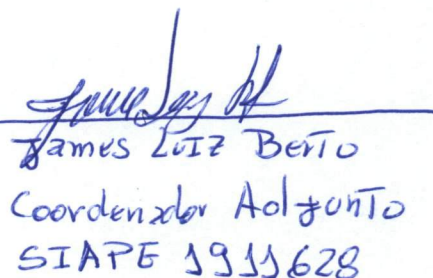 James Luiz Berto
Coordenador Adjunto
SIAPE 1911628